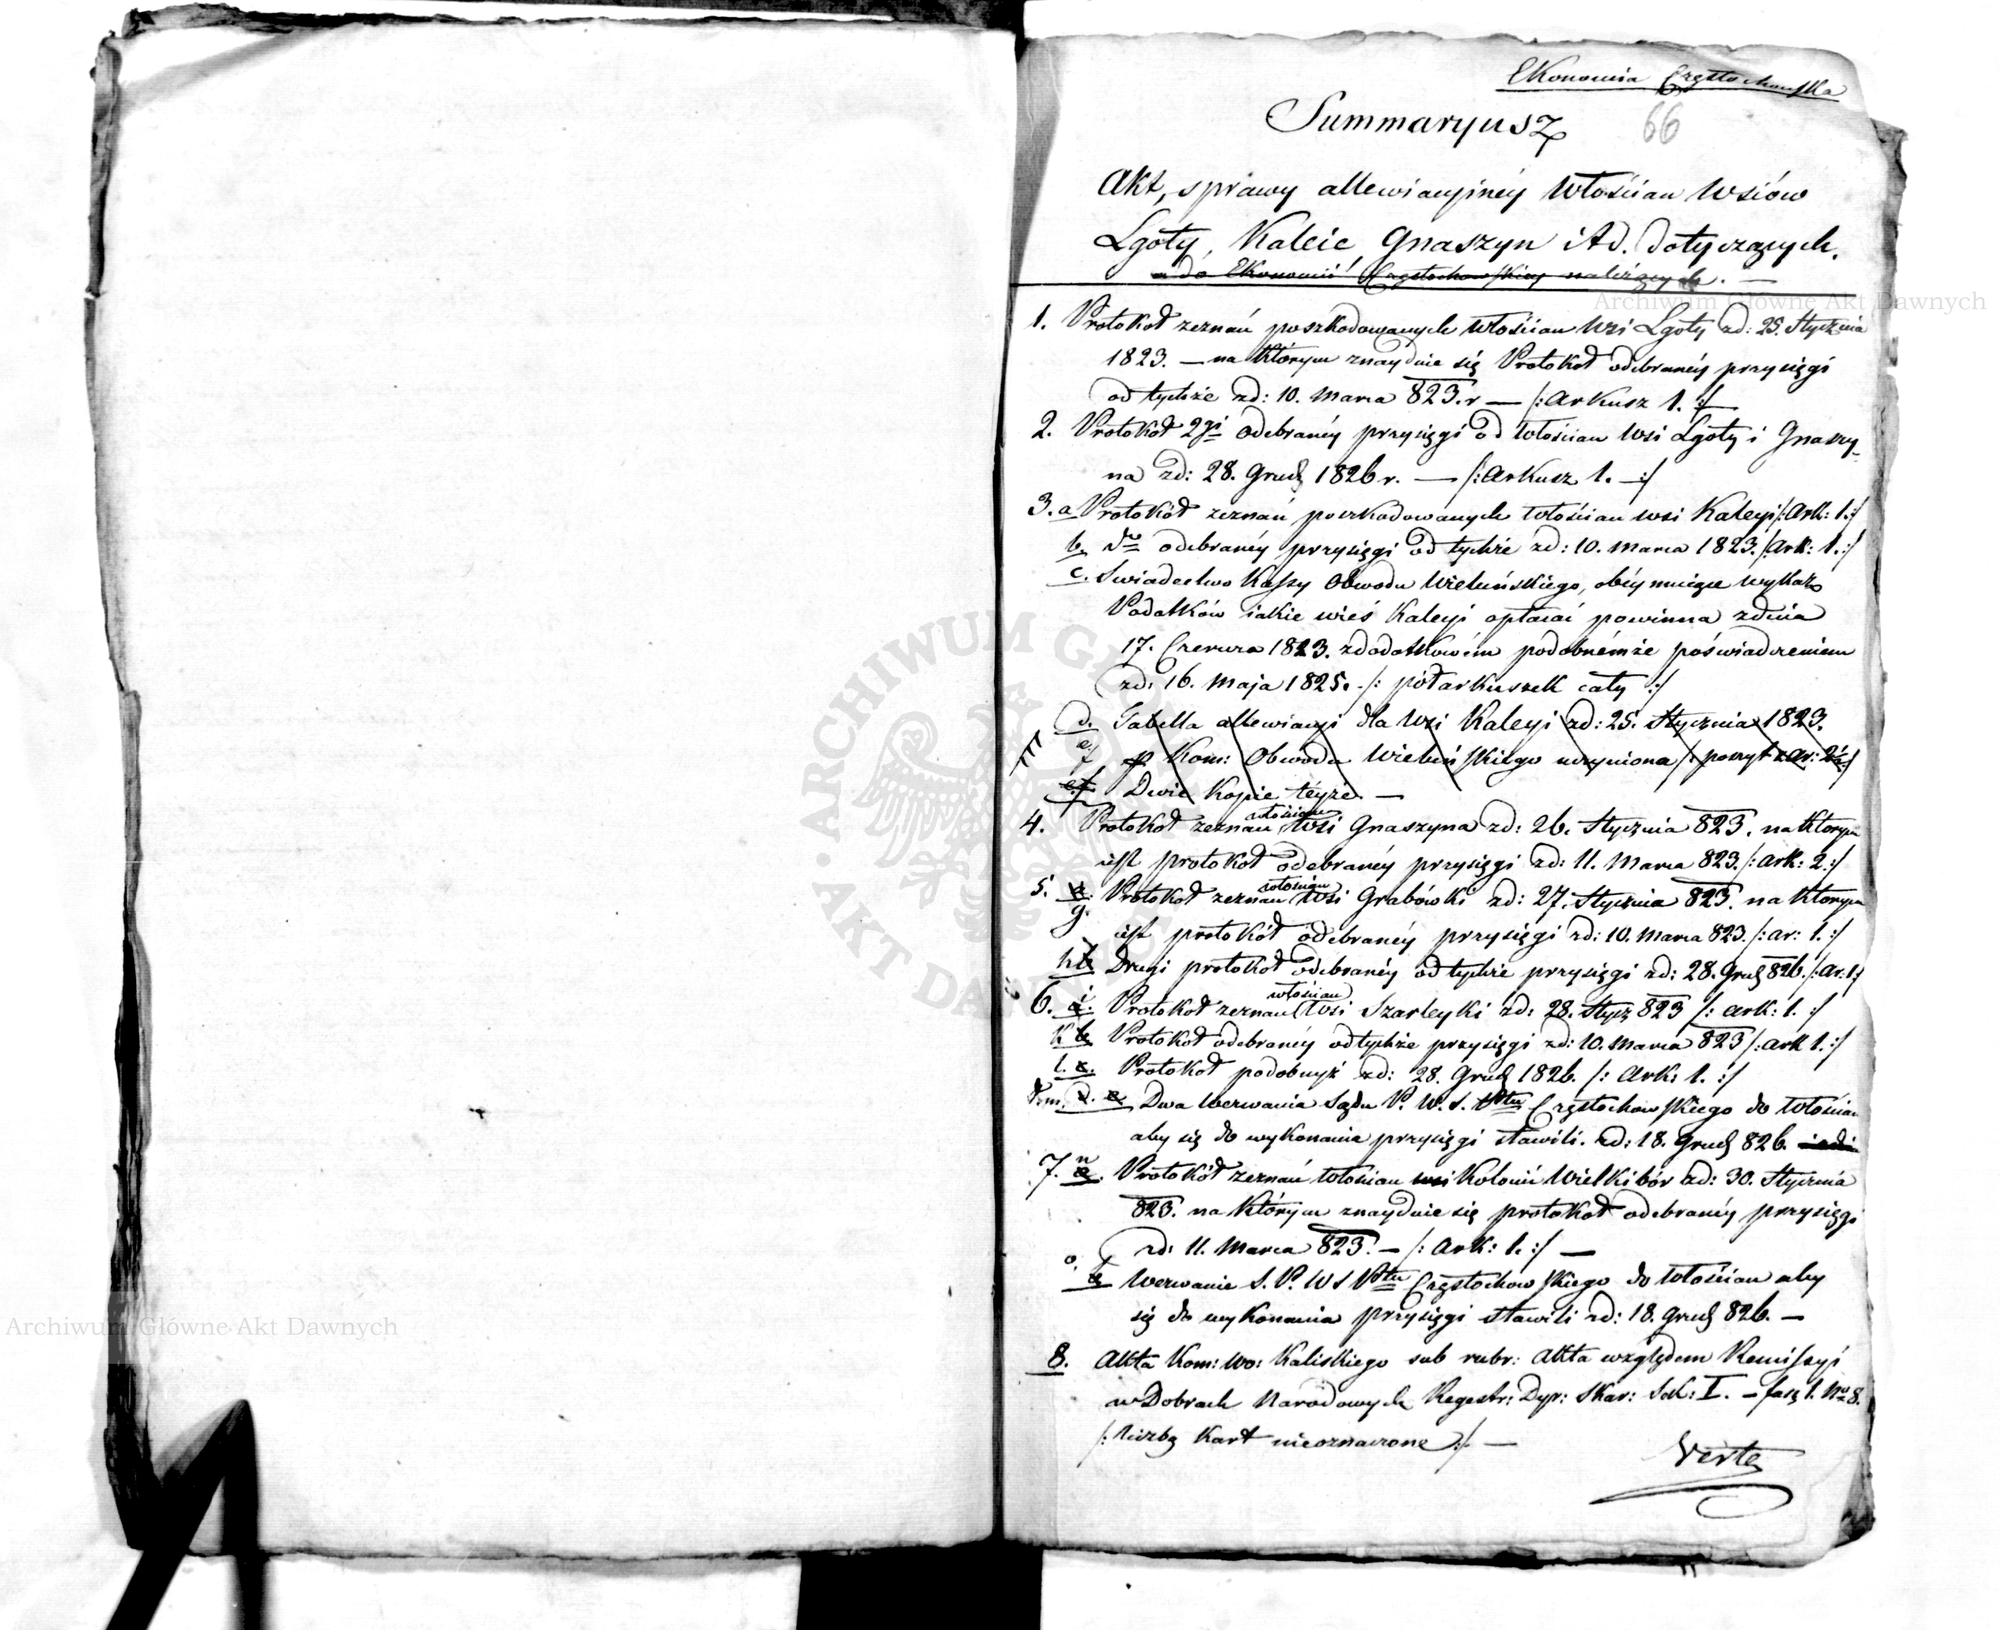 Ekonomia Częstochowska
Summaryusz
66
Akt, sprawy allewiacyjnéy Włościan Wsiów
Lgoty, Kaleie, Gnaszyn i t d. dotyczących.
a do Ekonomii Częstochowskiey należących. —
Archiwum Główne Akt Dawnych
1. Protokół zeznań poszkodowanych włościan Wsi Lgoty zd: 25. Stycznia
1823. — na którym znayduie się Protokół odebranéy przysięgi
od tychże zd: 10. Marca 823. r — /: Arkusz 1. :/
2. Protokół 2gi odebranéy przysięgi od włościan Wsi Lgoty i Gnaszy-
na zd: 28. Grud 1826 r. — /: Arkusz 1. — :/
3. a Protokół zeznań poszkodowanych włościan wsi Kaleyi /: Ark: 1. :/
b. dto odebranéy przysięgi od tychże zd: 10. Marca 1823. /Ark: 1. :/
c. Swiadectwo Kassy Obwodu Wieluńskiego, obéymuiące wykaz
Podatków iakie wieś Kaleyi opłacać powinna zdnia
17. Czerwca 1823. zdodatkowém podobnémże poświadczeniem
zd: 16. Maja 1825. /: półarkuszek cały :/
d. Tabella allewiacyi dla Wsi Kaleyi zd: 25. Stycznia 1823.
e. p Kom: Obwodu Wieluńskiego uczyniona /: poszyt z ar: 2½ :/
f. Dwie Kopie téyże. —
4. Protokół zeznań włościan Wsi Gnaszyna zd: 26. Stycznia 823. na którym
iest protokół odebranéy przysięgi zd: 11. Marca 823. /: Ark: 2. :/
5. g. Protokół zeznań włościan Wsi Grabówki zd: 27. Stycznia 823. na którym
iest protokół odebranéy przysięgi zd: 10. Marca 823. /: ar: 1. :/
h b Drugi protokół odebranéy od tychże przysięgi zd: 28. Grud 826. /: Ar: 1 :/
6. i a. Protokół zeznań włościan Wsi Szarleyki zd: 28. Stycz 823 /: ark: 1. :/
k b Protokół odebranéy od tychże przysięgi zd: 10. Marca 823 /: ark 1. :/
l. c. Protokół podobnyż zd: 28. Grud 1826. /: Ark: 1. :/
m. d. Dwa wezwania Sądu P. W. S. Pttu Częstochowskiego do włościan
aby się do wykonania przysięgi stawili. zd: 18. Grud 826.
7. n a. Protokół zeznań włościan wsi Kolonii Wielkibór zd: 30. Stycznia
823. na którym znayduie się protokół odebranéy przysięgi
zd: 11. Marca 823. — /: Ark: 1. :/ —
o. b Wezwanie S. P. W S Pttu Częstochowskiego do włościan aby
się do wykonania przysięgi stawili zd: 18. Grud 826. —
Archiwum Główne Akt Dawnych
8. Akta Kom: Wo: Kaliskiego sub rubr: Akta względem Remissyi
w Dobrach Narodowych Regestr: Dyr: Skar: Sek: I. — fasc 1. No 8.
/: liczbą Kart nieoznaczone :/ —
Verte
ARCHIWUM GŁÓWNE AKT DAWNYCH